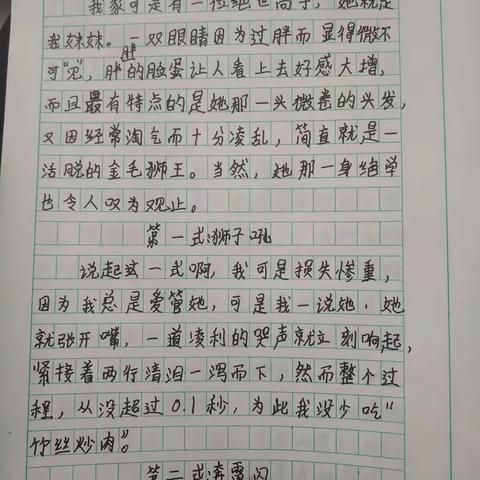 我家可是有一位绝世高手，她就是
我妹妹。一双眼睛因为过胖而显得微不
可“见”，胖胖的脸蛋让人看上去好感大增，
而且最有特点的是她那一头微卷的头发，
又因经常淘气而十分凌乱，简直就是一
活脱的金毛狮王。当然，她那一身绝学
也令人叹为观止。
第一式：狮子吼
说起这一式啊，我可是损失惨重，
因为我总是爱管她，可是我一说她，她
就张开嘴，一道凌利的哭声就立刻响起，
紧接着两行清泪一泻而下，然而整个过
程，从没超过0.1秒，为此我没少吃“
竹丝炒肉”。
第二式：奔雷闪